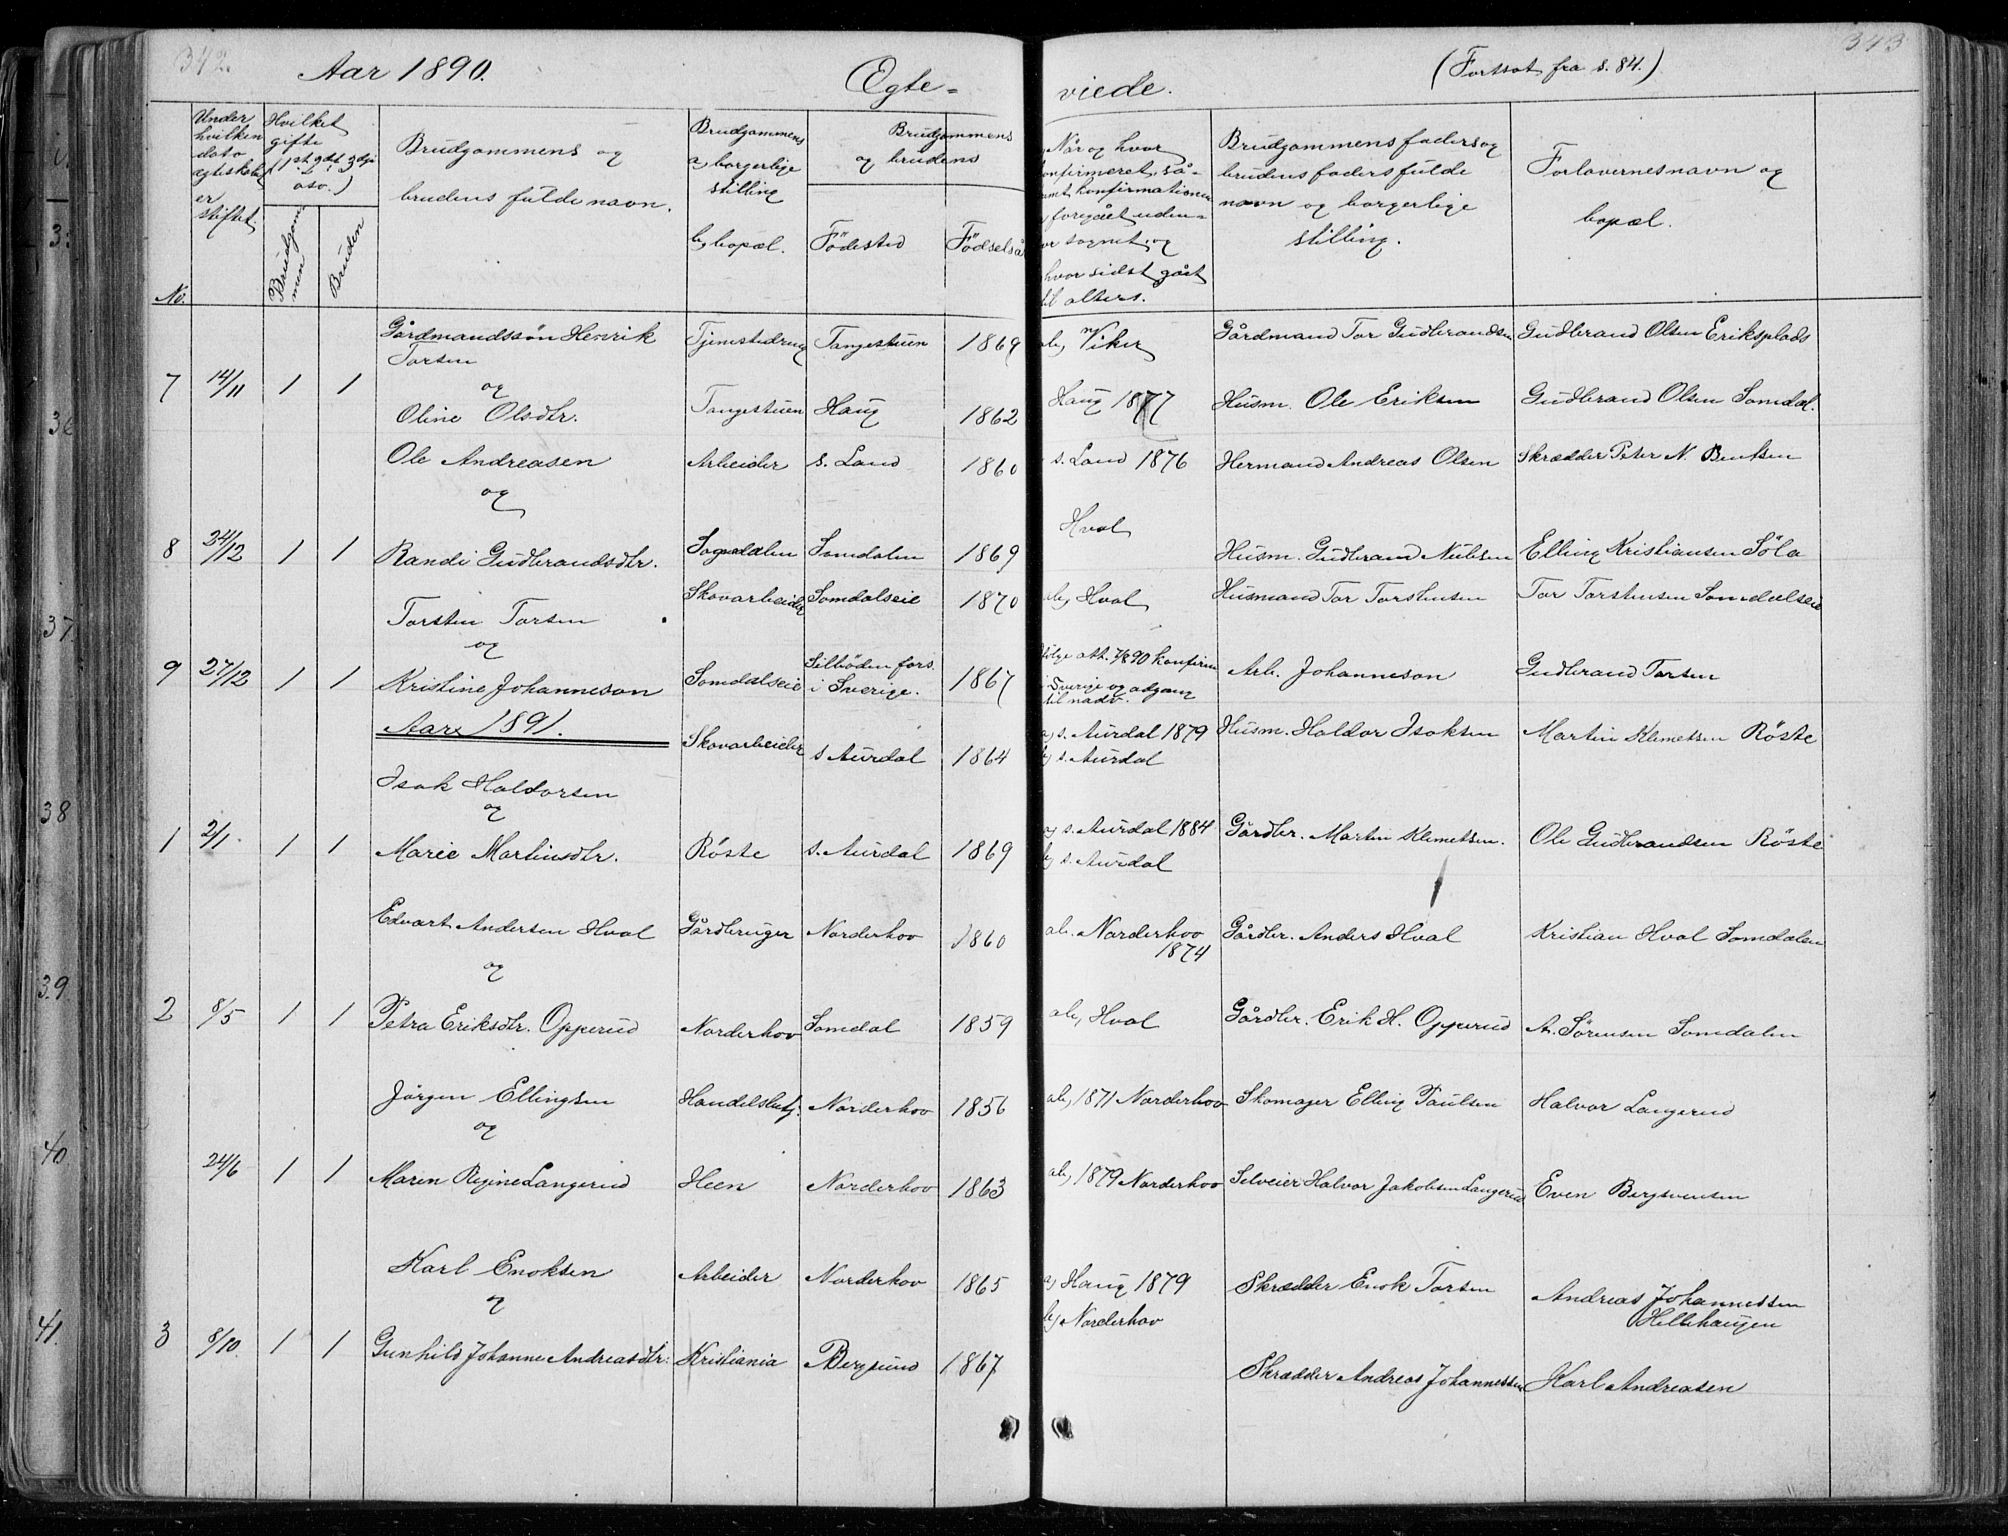 342.
Aar 1890.
Egte-
viede.
(Fortsat fra s. 84.)
343
No.
Under hvilken dato ægteskabet er stiftet.
Hvilket gifte (1st 2det 3die osv.)
Brudgommen
Bruden
Brudgommens og brudens fulde navn.
Brudgommens a, borgerlige stilling b, bopæl.
Brudgommens og brudens
Födested
Födselsår
Når og hvor konfirmeret, så-
samt konfirmationen
foregået uden-
for sognet, og
hvor sidst gået
til alters.
Brudgommens faders og
brudens faders fulde
navn og borgerlige
stilling.
Forlovernes navn og
bopæl.
Gårdmandssön Henrik Torsen
Tjenestedreng Tangestuen 1869 ab, Viker Gårdmand Tor Gudbrandsen Gudbrand Olsen Eriksplads
7 14/11 1 1 og
Oline Olsdtr. Tangestuen Haug 1862 Haug 1877 Husm. Ole Eriksen Gudbrand Olsen Somdal.
Ole Andreasen Arbeider s. Land 1860 s. Land 1876 Hermand Andreas Olsen Skrædder Peter N. Bentsen
og
8 24/12 1 1 Randi Gudbrandsdtr. Sognedalen Somdalen 1869 Hval Husm. Gudbrand Nielsen Elling Kristiansen Söla
Torsten Torsen Skovarbeider Somdalseie 1870 ab, Hval Husmand Tor Torstensen Tor Torstensen Somdalseie
og
9 27/12 1 1 Kristine Johanneson Somdalseie Silböden fors. i Sverige. 1867 ifölge att. 7/8 90 konfirm. i Sverige og adgang til nadv. Arb. Johanneson Gudbrand Torsen
Aar 1891.
Isak Haldorsen Skovarbeider s. Aurdal 1864 a, s. Aurdal 1879 b, s. Aurdal Husm. Haldor Isaksen Martin Klemetsen Röste
og
1 2/1 1 1 Marie Martinsdtr. Röste s. Aurdal 1869 a, s. Aurdal 1884 b, s. Aurdal Gårdbr. Martin Klemetsen. Ole Gudbrandsen Röste
Edvart Andersen Hval Gårdbruger Norderhov 1860 ab. Norderhov 1874 Gårdbr. Anders Hval Kristian Hval Somdalen
og
2 8/5 1 1 Petra Eriksdtr. Opperud Norderhov Somdal 1859 ab, Hval Gårdbr. Erik H. Opperud A. Sörensen Somdalen
Jörgen Ellingsen Handelsbetj. Norderhov 1856 ab, 1871 Norderhov Skomager Elling Paulsen Halvor Langerud
og
24/6 1 1 Maren Regine Langerud Heen Norderhov 1863 ab, 1879 Norderhov Selveier Halvor Jakobsen Langerud Even Bergsvensen
Karl Enoksen Arbeider Norderhov 1865 a, Haug 1879 b, Norderhov Skrædder Enok Torsen Andreas Johannessen Hellehaugen
og
3 8/10 1 1 Gunhild Johanne Andreasdtr. Kristiania Bergsund 1867 Skrædder Andreas Johannessen Karl Andreasen
36
37
38
39.
40
41.